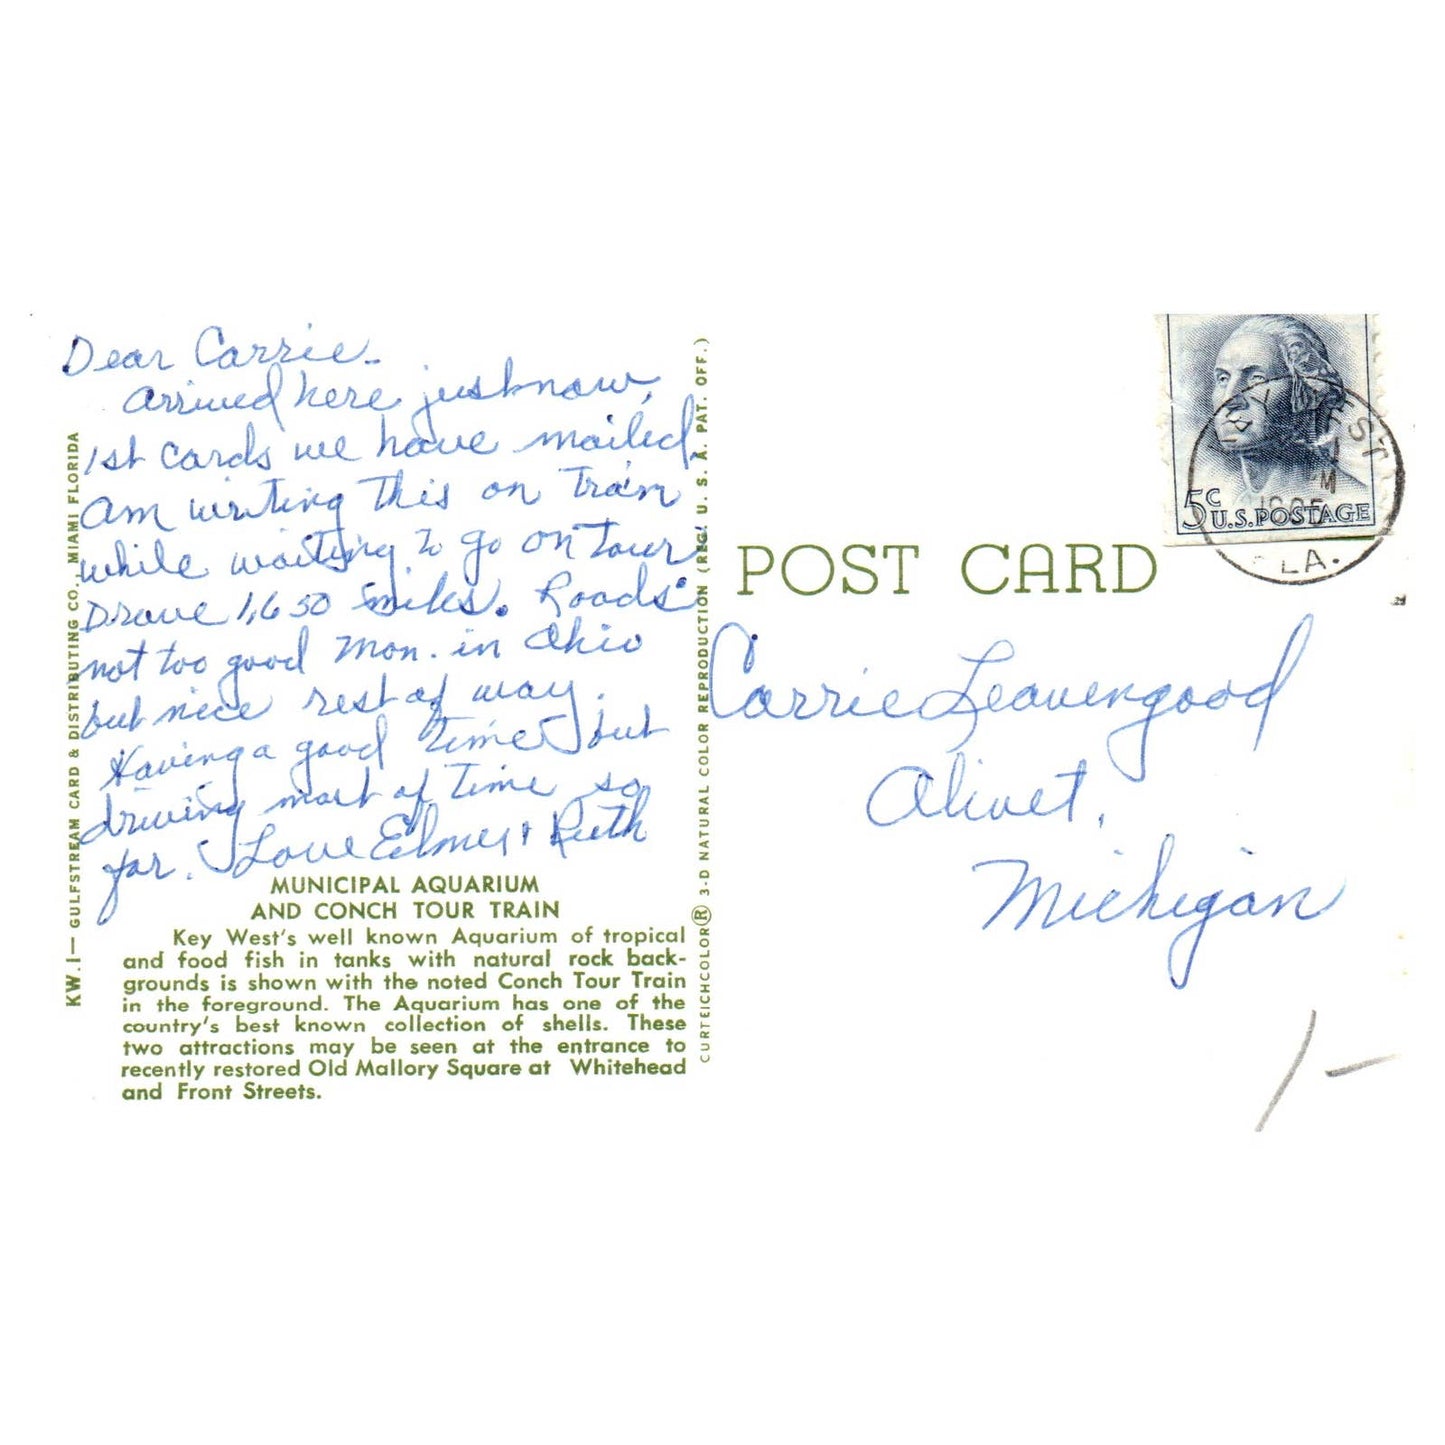 Dear Carrie -
Arrived here just now,
1st cards we have mailed.
Am writing this on Train
while waiting to go on Tour
Drove 1,650 miles. Roads
not too good Mon. in Ohio
but nice rest of way.
Having a good time but
driving most of time so
far. Love Elmer & Ruth
MUNICIPAL AQUARIUM
AND CONCH TOUR TRAIN
Key West's well known Aquarium of tropical
and food fish in tanks with natural rock back-
grounds is shown with the noted Conch Tour Train
in the foreground. The Aquarium has one of the
country's best known collection of shells. These
two attractions may be seen at the entrance to
recently restored Old Mallory Square at Whitehead
and Front Streets.
KW.1— GULFSTREAM CARD & DISTRIBUTING CO., MIAMI FLORIDA
CURTEICHCOLOR® 3-D NATURAL COLOR REPRODUCTION (REG. U. S. A. PAT. OFF.)
POST CARD
5c U.S. POSTAGE
KEY WEST
M
FLA.
Carrie Leavengood
Olivet,
Michigan
1-